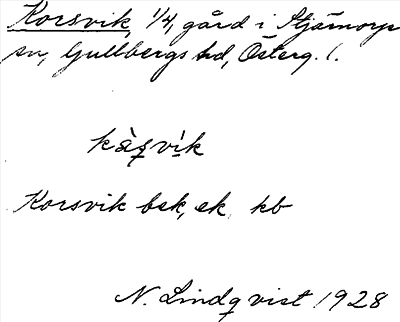 Korsvik, 1/4, gård i Stjärnorps
sn, Gullbergs hd, Österg. l.
kàʂvìk
Korsvik bsk, ek, kb
N. Lindqvist 1928